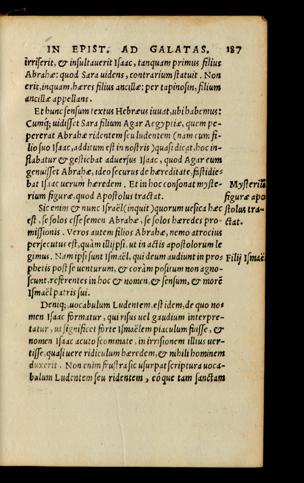 IN EPIST. AD GALATAS. 187
irriserit, & insultauerit Isaac, tanquam primus filius
Abrahæ: quod Sara uidens, contrarium statuit. Non
erit, inquam, hæres filius ancillæ: per tapinosin, filium
ancillæ appellans.
Et hunc sensum textus Hebræus iuuat, ubi habemus:
Cumq́; uidisset Sara filium Agar Aegyptiæ, quem pe-
pererat Abrahæ ridentem seu ludentem (nam cum fi-
lio suo Isaac, additum est in nostris) quasi dicat, hoc in-
stabatur & gestiebat aduersus Isaac, quod Agar eum
genuisset Abrahæ, ideo securus de hæreditate, fastidie-
bat Isaac uerum hæredem. Et in hoc consonat myste-
rium figuræ, quod Apostolus tractat.
Mysteriū
figuræ apo
stolus tra-
ctat.
Sic enim & nunc Israël (inquit) quorum uesica hæc
est, se solos esse semen Abrahæ, se solos hæredes pro-
missionis. Veros autem filios Abrahæ, nemo atrocius
persecutus est, quàm illi ipsi, ut in actis apostolorum le
gimus. Nam ipsi sunt Ismaël, qui deum audiunt in pro
phetis post se uenturum, & coràm positum non agno-
scunt, referentes in hoc & nomen & sensum, & morē
Ismaël patris sui.
Filij Ismaë
Deniq́; uocabulum Ludentem, est idem, de quo no
men Isaac formatur, qui risus uel gaudium interpre-
tatur, ut significet forte Ismaëlem piaculum fuisse, &
nomen Isaac acuto scommate, in irrisionem illius uer-
tisse, quasi uere ridiculum hæredem, & nihili hominem
duxerit. Non enim frustra sic usurpat scriptura uoca-
bulum Ludentem seu ridentem, eóque tam sanctam